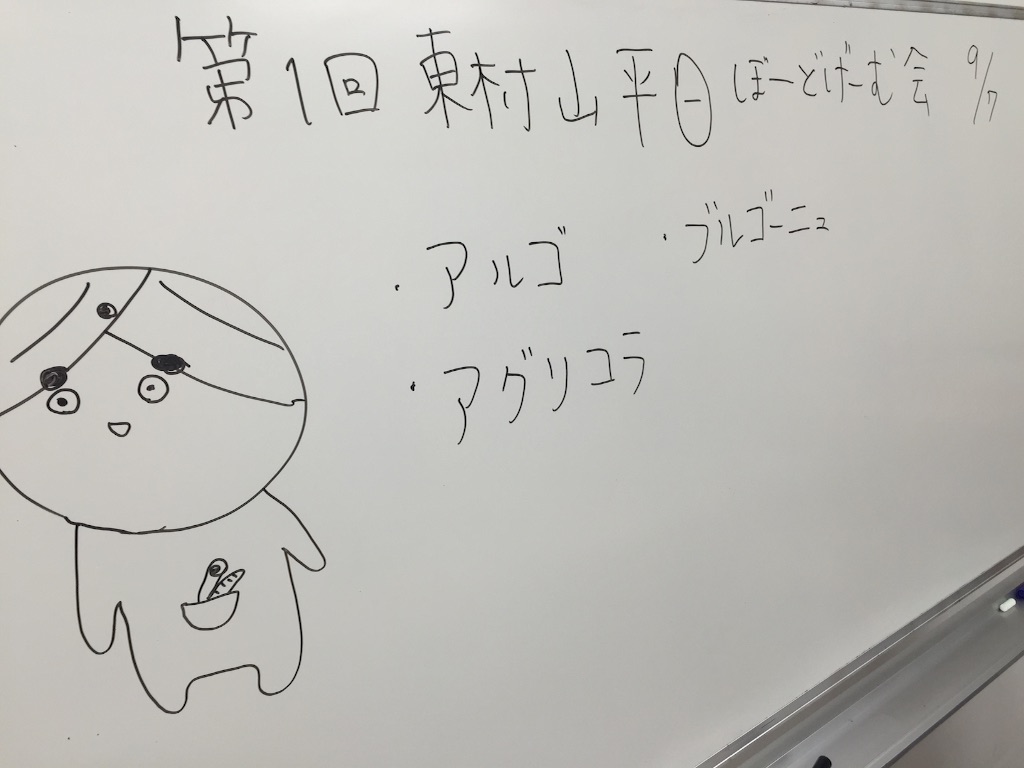 第1回 東村山平日ぼーどげーむ会 9/7
・アルゴ ・ブルゴーニュ
・アグリコラ